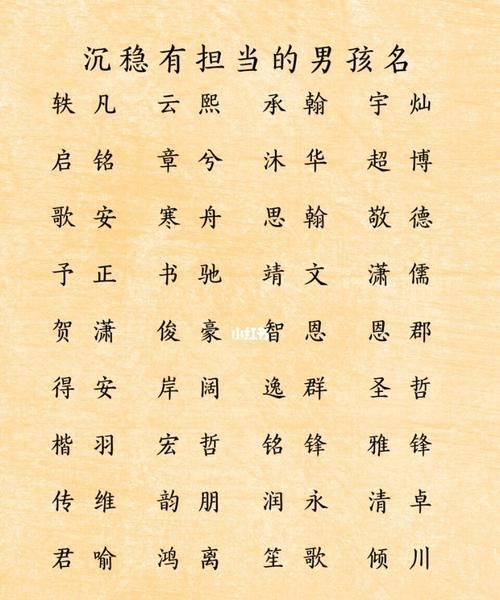 沉稳有担当的男孩名
轶凡 云熙 承翰 宇灿
启铭 章兮 沐华 超博
歌安 寒舟 思翰 敬德
予正 书驰 靖文 潇儒
贺潇 俊豪 智恩 恩郡
小红书
得安 岸阔 逸群 圣哲
楷羽 宏哲 铭锋 雅锋
传维 韵朋 润永 清卓
君喻 鸿离 笙歌 倾川